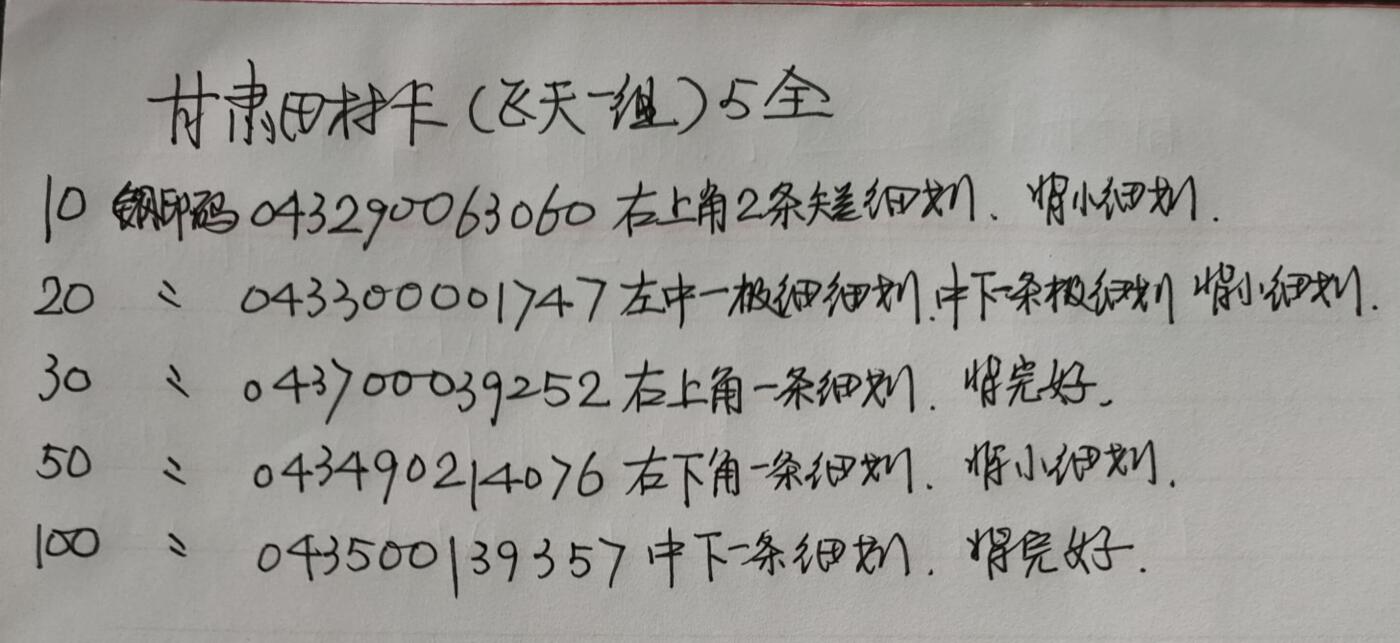 甘肃田村卡(飞天一组)5全
10 钢印码043290063060右上角2条短细划、背小细划.
20 〃 043300001747左中一极细细划.中下一条极细划 背小细划.
30 〃 043700039252右上角一条细划. 背完好.
50 〃 043490214076右下角一条细划. 背小细划.
100 〃 043500139357中下一条细划. 背完好.